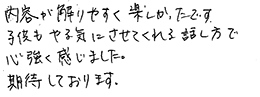 内容が解りやすく楽しかったです
子供もやる気にさせてくれる話し方で
心強く感じました。
期待しております。